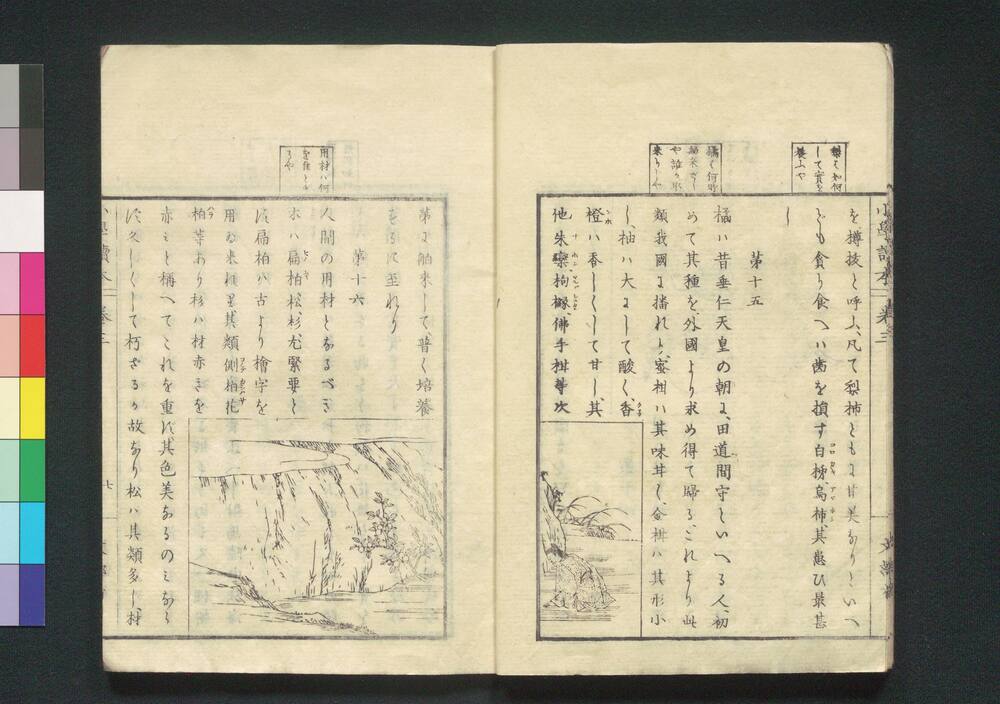 梨は如何
して實を
養ふや
橘は何時
舶來せし
や誰が取
來りしや
小學讀本 卷三
を搏抜と呼ふ、凡て梨柿ともに甘美なりといへ
ども貪り食へハ齒を損す白柹、烏柹、其患ひ最甚
し
第十五
橘ハ昔垂仁天皇の朝に、田道間守といへる人、初
めて其種を外國より求め得て歸る、これより此
類我國に播れり、蜜柑ハ其味甘し、金柑ハ其形小
し、柚ハ大にして酸く、香
橙ハ香しくして甘し、其
他朱欒、枸櫞、佛手柑等次
用材ハ何
第に舶來して、普く培養
するに至れり
第十六
人間の用材となるべき
木ハ扁柏、松、杉尤緊要し
扁柏ハ古より檜字を
用ゐ來れり其類側柏、花
柏等あり杉ハ材赤きを
赤ミと稱へてこれを重す其色美なるのミなら
す久しくして朽ざるが故なり松ハ其類多し、材
小學讀本 卷三
七